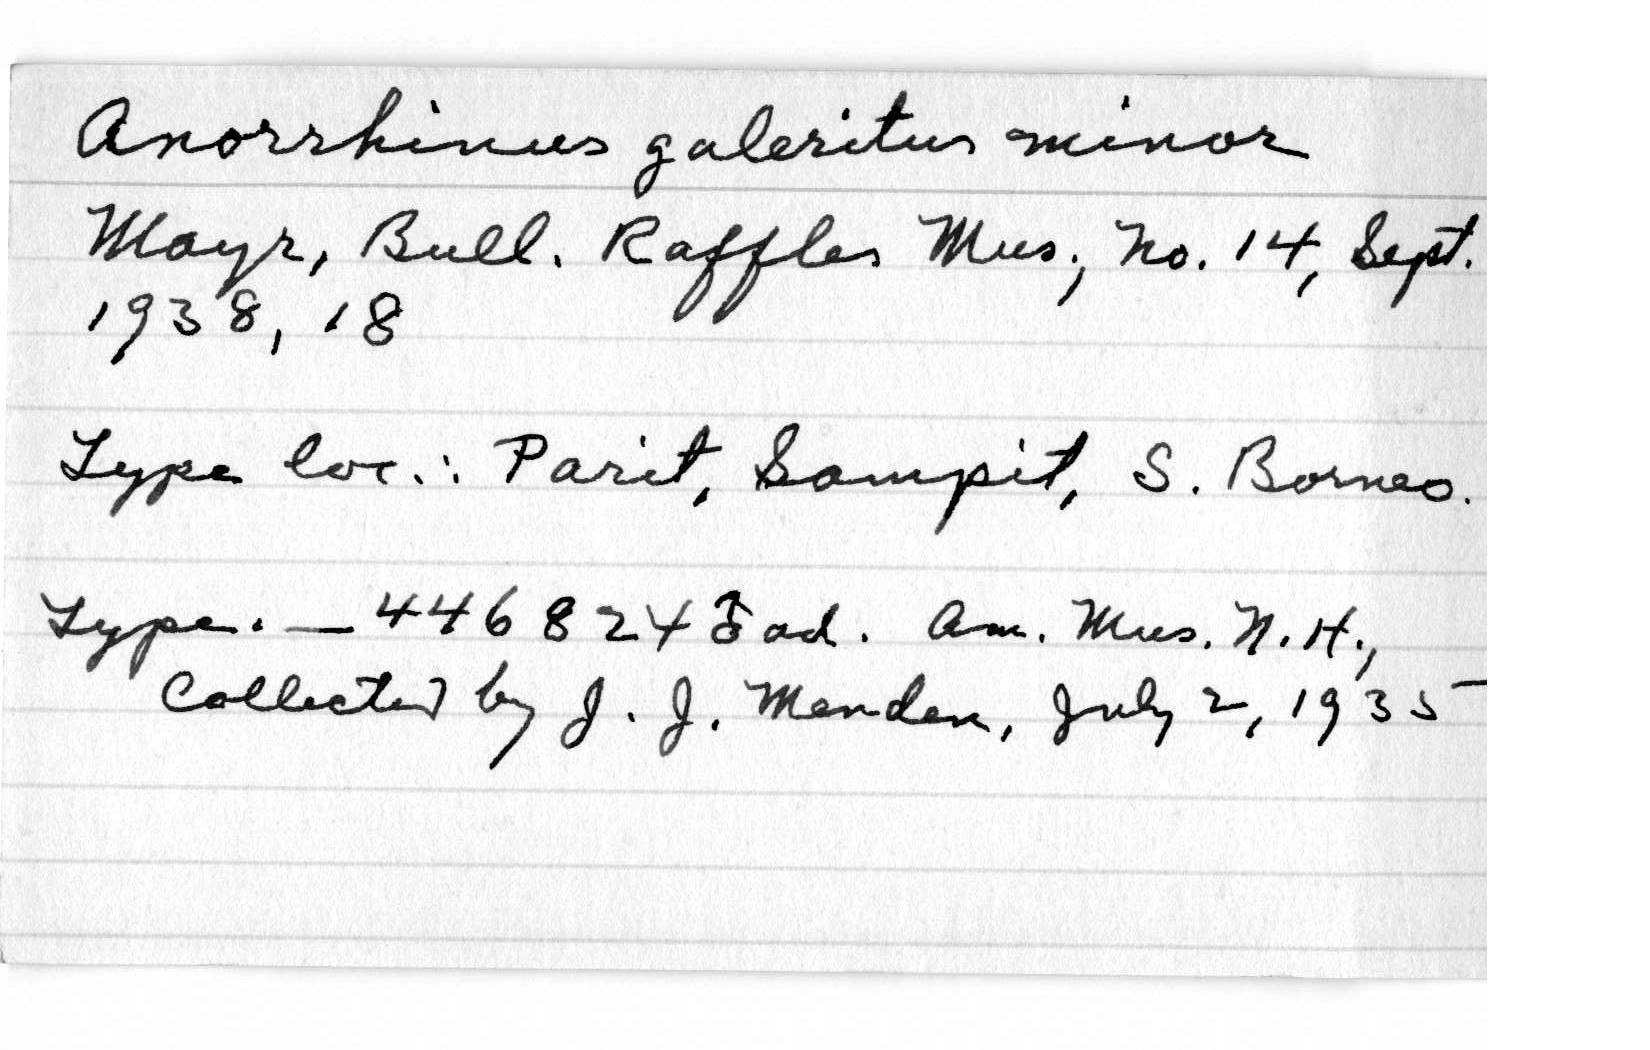 Anorrhinus galeritus minor
Mayr, Bull. Raffles Mus., No. 14, Sept.
1938, 18
Type loc.: Parit, Sampit, S. Borneo.
Type. — 446824 ♂ ad. Am. Mus. N. H.,
Collected by J. J. Menden, July 2, 1935